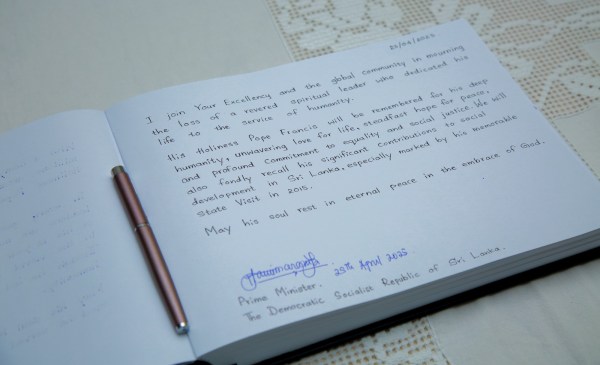 25/04/2025
I join Your Excellency and the global community in mourning
the loss of a revered spiritual leader who dedicated his
life to the service of humanity.
His Holiness Pope Francis will be remembered for his deep
humanity, unwavering love for life, steadfast hope for peace,
and profound commitment to equality and social justice. We will
also fondly recall his significant contributions to social
development in Sri Lanka, especially marked by his memorable
State Visit in 2015.
May his soul rest in eternal peace in the embrace of God.
25th April 2025
Prime Minister,
The Democratic Socialist Republic of Sri Lanka.